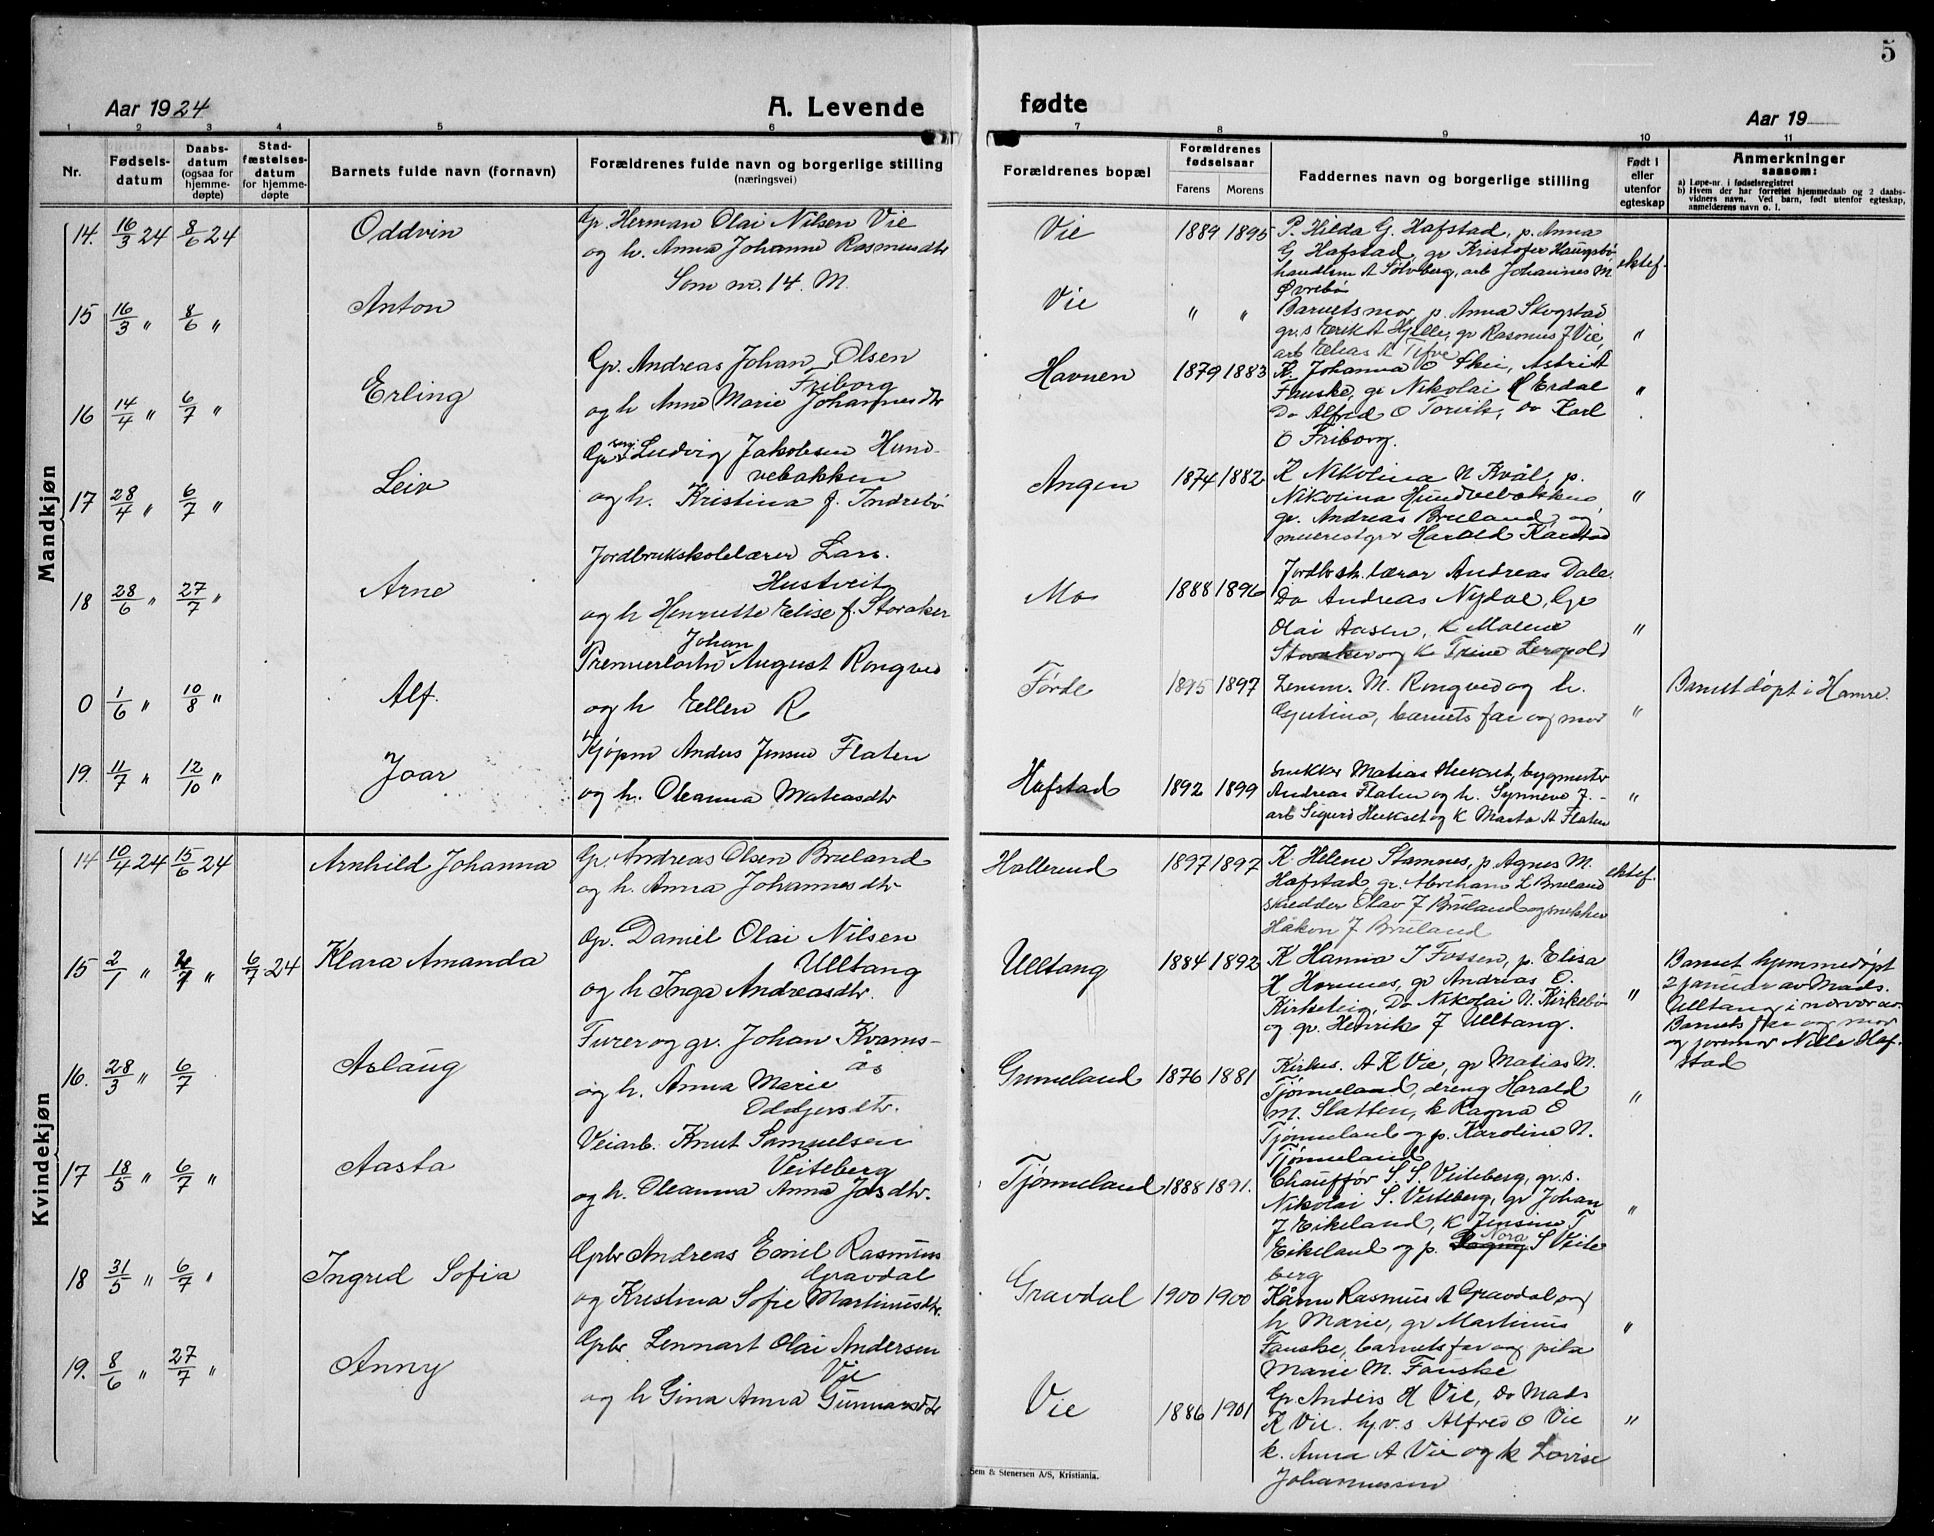 5
Aar 1924
A. Levende
fødte
Aar 19
1 2 3 4 5 6 7 8 9 10 11
Nr.
Fødsels-datum
Daabs-datum (ogsaa for hjemme-døpte)
Stad-fæstelses-datum for hjemme-døpte
Barnets fulde navn (fornavn)
Forældrenes fulde navn og borgerlige stilling (næringsvei)
Forældrenes bopæl
Forældrenes fødselsaar
Farens Morens
Faddernes navn og borgerlige stilling
Født i eller utenfor egteskap
Anmerkninger saasom:
a) Løpe-nr. i fødselsregistret
b) Hvem der har forrettet hjemmedaab og 2 daabs-
vidners navn. Ved barn, født utenfor egteskap,
anmelderens navn o. l.
Mandkjøn
14. 16/3 24 8/6 24 Oddvin
Gr. Herman Olai Nilsen Vie
og h. Anna Johanne Rasmusdtr
Som nr. 14. M.
Vie 1889 1895
P. Hilda G. Hafstad, p. Anna
G Hafstad, gr Kristofer Haugsbø
handlsm A Sølvberg, arb Johannes M.
Øvrebø
ektef.
15 16/3 " 8/6 " Anton
Vie " "
Barnets mor, p. Anna Skogstad
gr. s Erik A Hjelle, gr Rasmus J Vie,
arb Elias A Tefre
"
16 14/4 " 6/7 " Erling
Gr. Andreas Johan Olsen
Friborg
og h Anne Marie Johannesdtr
Havnen 1879 1883
K. Johanna O Skei, Astrid A
Fauske, gr Nikolai Erdal
Do Alfred O Torvik, do Karl
O Friborg.
"
17 28/4 " 6/7 " Leiv
Gr Ludvig Jakobsen Hund-
vebakken
og h. Kristina f. Indrebø
Angen 1874 1882
K Nikolina N Kvål, p.
Nikolina Hundvebakken
gr. Andreas Bruland og
meierestyrer Harald Kårstad
"
18 28/6 " 27/7 " Arne
Jordbrukskolelærer Lars
Hustveit
og h Henriette Elise f. Storaker
Mo 1888 1896
Jordbr sk. lærar Andreas Dale.
Do Andreas Nydal, Gr
Olai Aasen, K Malene
Storaker og K Trine Leopold
"
0 1/6 " 10/8 " Alf.
Johan
Premierløitn August Rongved
og h Ellen R
Førde 1895 1897
Lensm. M. Rongved og h.
Agutina, barnets far og mor
"
Barnet døpt i Hamre.
19. 11/7 " 12/10 " Joar
Kjøpm Anders Jensen Flaten
og h. Oleanna Mateasdtr
Hafstad 1892 1899
snekker Matias Heksel, bygmester
Andreas Flaten og h. Synneve J. -
arb Sigurd Heksel og K Marta A Flaten
"
Kvindekjøn
14 10/4 24 15/6 24 Arnhild Johanna
Gr. Andreas Olsen Bruland
og h. Anna Johannesdtr
Hallerend 1897 1897
K. Helene Stamnes, p. Agnes M.
Hafstad, gr. Abraham L Bruland
skredder Olav J Bruland og snekker
Håkon J Bruland
ektef.
15 2/1 " 2/7 " 6/7 24 Klara Amanda
Gr. Daniel Olai Nilsen
Ulltang
og h Inga Andreasdtr.
Ulltang 1884 1892
K Hanna I Fossen, p. Elisa
H Hornnes, gr Andreas O.
Kirketeig, Do Nikolai N. Kirkebø
og gr. Henrik J Ulltang.
"
Barnet hjemmedøpt
2 januar av Mads.
Ulltang i nærvær av
Barnets far og mor
og jormor Nille Haf-
stad
16. 28/3 " 6/7 Aslaug
Furer og gr. Johan Kvams-
ås
og h. Anna Marie
Oddgersdtr.
Gunneland 1876 1881
Kirkes. A K Vie, gr Matias M.
Tjønneland, dreng Harald
M. Slatten, k Ragna O
Tjønneland og p. Karoline N.
Tjønneland
"
17 18/5 " 6/7 " Aasta
Veiarb. Knut Samuelsen
Veiteberg
og h. Oleanna Anna Josdtr.
Tjønneland 1888 1891.
Chauffør S. S. Veiteberg, gr. s.
Nikolai S. Veiteberg, gr Johan
J Eikeland, K Jensine T
Nora
Eikeland og p. S Veite
berg
"
18 31/5 " 6/7 " Ingrid Sofia
Grbr Andreas Emil Rasmuns
Gravdal
og Kristina Sofie Martinusdtr.
Gravdal 1900 1900
Kårm Rasmus A Gravdal og
h Marie, gr Martinus
Fauske, barnets far og pike
Marie M. Fauske
"
19. 8/6 " 27/7 " Anny
Grbr Lennart Olai Andersen
Vie
og h Gina Anna Gunnarsdtr
Vie 1886 1901
Gr Anders H Vie, Do Mads
K Vie. hj.v.s Alfred O Vie
k. Anna A Vie og k Lovise
Johannessen
"
Sem & Stenersen A/S, Kristiania.